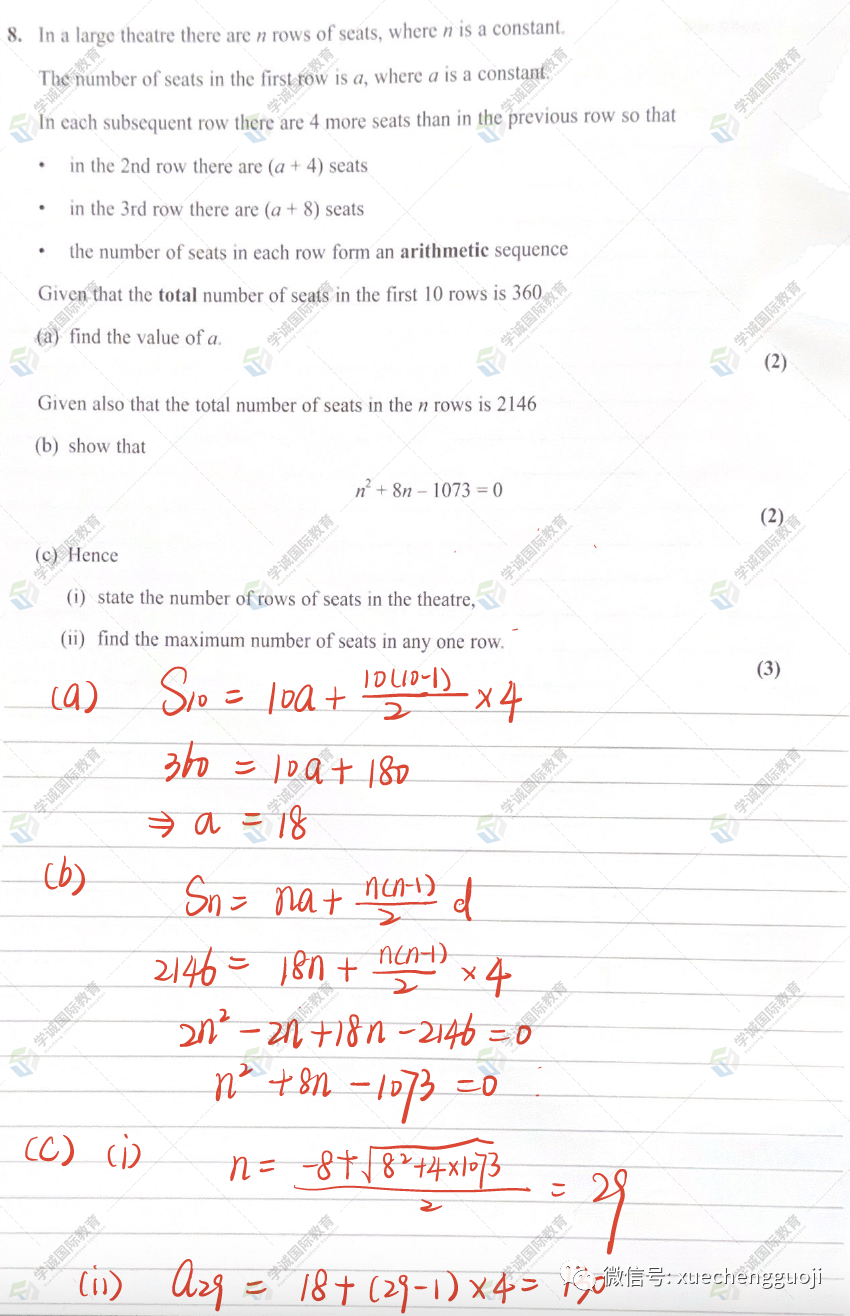 8. In a large theatre there are n rows of seats, where n is a constant.
The number of seats in the first row is a, where a is a constant.
In each subsequent row there are 4 more seats than in the previous row so that
• in the 2nd row there are (a + 4) seats
• in the 3rd row there are (a + 8) seats
• the number of seats in each row form an arithmetic sequence
Given that the total number of seats in the first 10 rows is 360
(a) find the value of a.
(2)
Given also that the total number of seats in the n rows is 2146
(b) show that
n² + 8n – 1073 = 0
(2)
(c) Hence
(i) state the number of rows of seats in the theatre,
(ii) find the maximum number of seats in any one row.
(3)
(a) S₁₀ = 10a + 10(10-1)/2 × 4
360 = 10a + 180
⇒ a = 18
(b) Sn = na + n(n-1)/2 d
2146 = 18n + n(n-1)/2 × 4
2n² - 2n + 18n - 2146 = 0
n² + 8n - 1073 = 0
(C) (i) n = (-8 + √(8² + 4×1073))/2 = 29
(ii) a₂₉ = 18 + (29-1) × 4 =
微信号: xuechengguoji
学诚国际教育